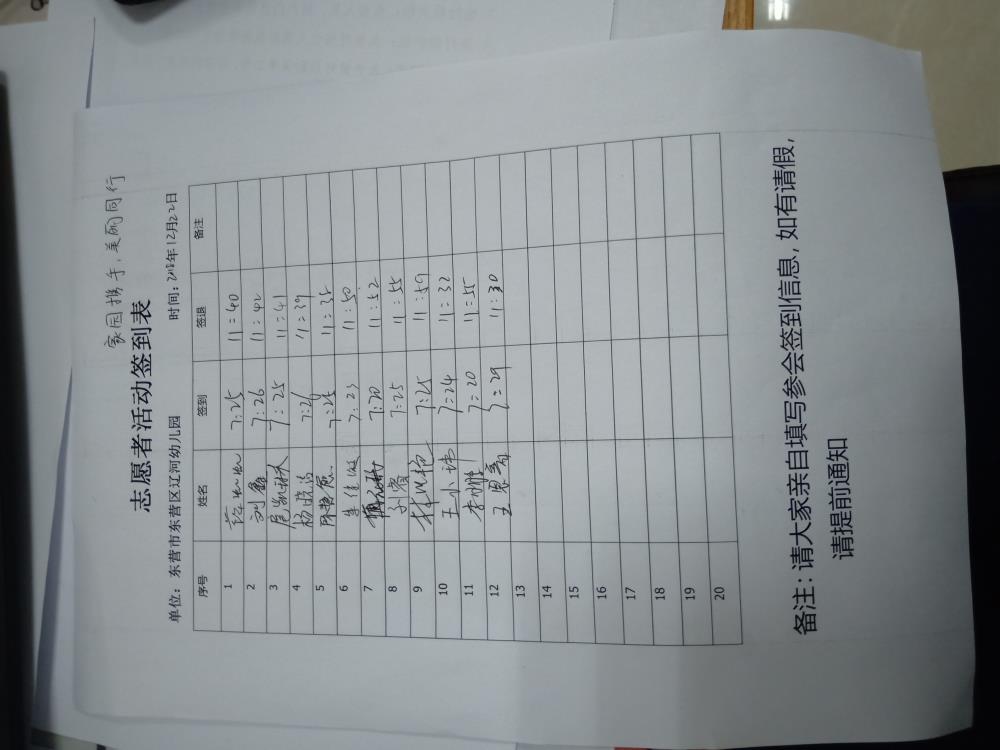 家园携手，美丽同行
志愿者活动签到表
单位：东营市东营区辽河幼儿园 时间：年12月22日
序号 姓名 签到 签退 备注
1 7:25 11:40
2 刘鑫 7:26 11:42
3 7:25 11:41
4 杨晓 7:26 11:39
5 7:25 11:35
6 7:23 11:50
7 7:20 11:52
8 7:25 11:55
9 林 7:25 11:59
10 王小 7:24 11:32
11 李娜 7:20 11:55
12 王 7:29 11:30
13
14
15
16
17
18
19
20
备注：请大家亲自填写参会签到信息，如有请假，
请提前通知